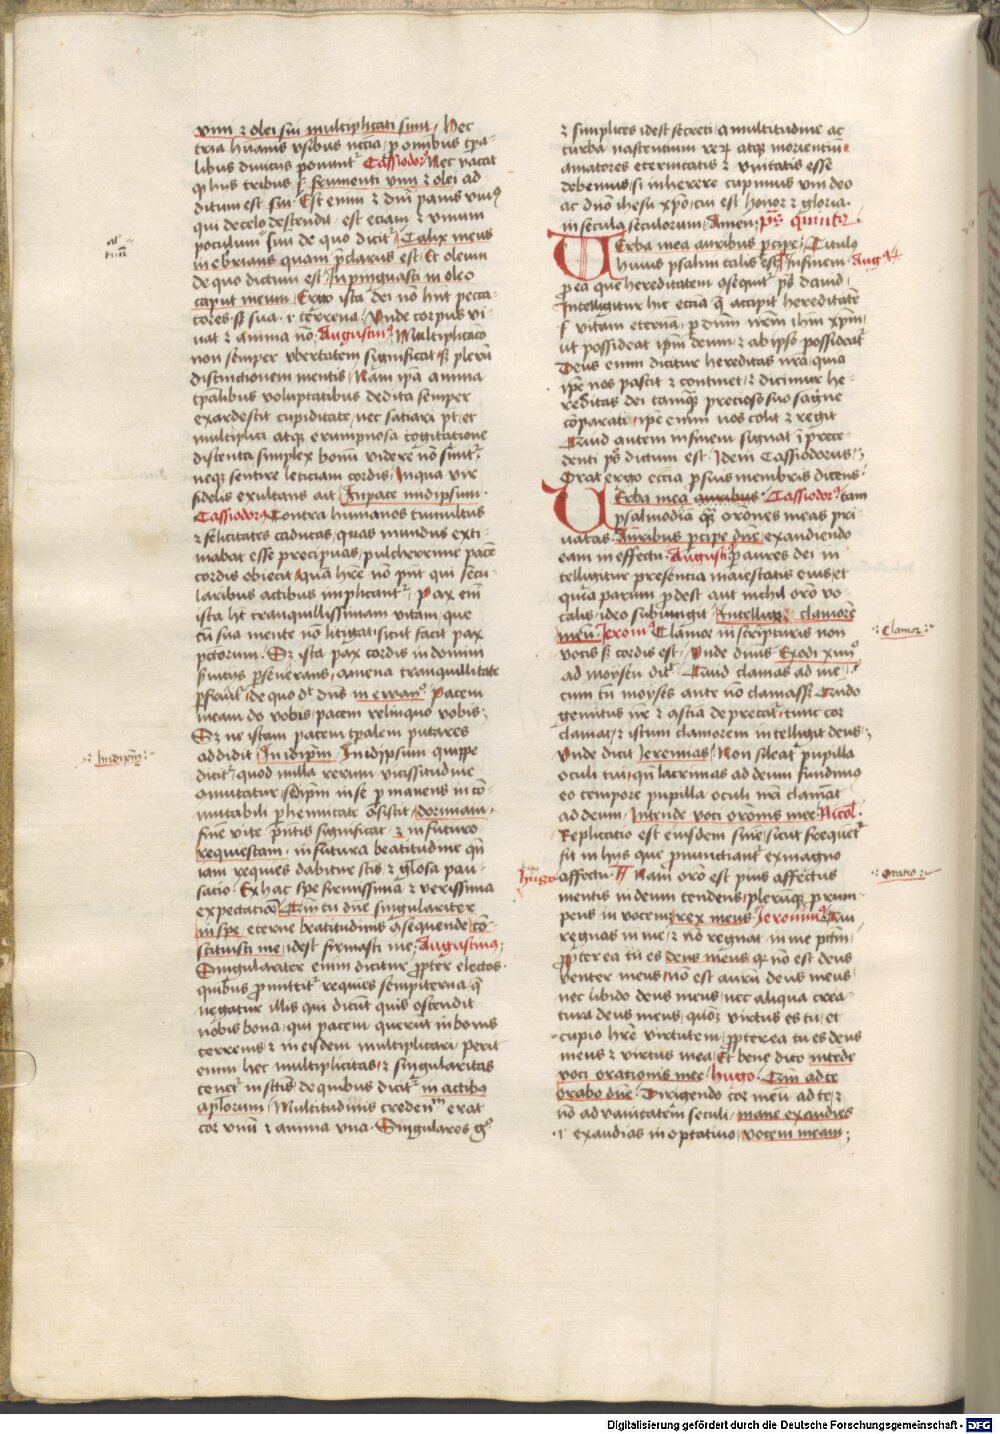 vini ⁊ olei sui multiplicati sunt / Hec
tria humanis vsibus nccia / p omibus tpa-
libus diuicijs ponunt᷑ Cassiodor⁹ Nec vacat
qꝫ hijs tribus .s. frumenti vini ⁊ olei ad
ditum est sui · Est enim ⁊ dni panis viuꝰ
qui de celo descendit · est eciam ⁊ vinum
poculum sui de quo dicit᷑ / Calix meus
inebrians quam pclarus est / Et oleum
de quo dictum est / Inpinguasti in oleo
caput meum / Ergo ista dei nō hnt pecca-
tores · sꝫ sua .i. terrena / Vnde corpus vi-
uat ⁊ anima nō / Augustinꝰ / Multiplicacō
non semper vbertatem significat / sꝫ plerū
distinctionem mentis / Nam ipā anima
tpalibus voluptatibus dedita semper
exardescit cupiditate / nec satiari pt / et
multiplici atqꝫ erumpnosa cogitatione
distenta / simplex bonū videre nō sinit᷑
neqꝫ sentire leticiam cordis / Inqua vir
fidelis exultans ait / Inpace inidipsum ·
Cassiodorꝰ Contra humanos tumultus
⁊ felicitates caducas / quas mundus exti-
mabat esse precipuas / pulcherrime pacē
cordis obiecit / quā hre nō pnt qui secu-
laribus actibus implicant᷑ / Pax em
ista ht tranquillissimam vitam / que
cū sua mente nō litigat / sicut facit pax
pctorum · Sꝫ ista pax cordis in domin
seruit᷑ pseuerans / amena tranquillitate
pfruit᷑ / de quo dt dns in ewanᵒ Pacem
meam do vobis / pacem relinquo vobis ·
Sꝫ ne istam pacem tpalem putares
addidit / In idipm / In idipsum quippe
dicit᷑ / quod nulla rerum vicissitudine
9mutatur / sꝫ idipm in se pmanens in cō-
mutabili phennitate 9sistit / dormiam ·
finē vite pntis significat / ⁊ in futuro
requiescam / in futura beatitudine qn
iam requies dabitur stis ⁊ glosa pau-
sacio · Ex hac spe firmissima ⁊ verissima
expectatiō / Qm tu dne singulariter
in spe / eterne beatitudinis 9sequende / cō-
stituisti me / idest firmasti me / Augustinus ;
Singulariter enim dicitur ppter electos ·
quibus pmittit᷑ requies sempiterna / q
negatur illis qui dicūt quis ostendit
nobis bona / qui pacem querūt in bonis
terrenis ⁊ in eisdem multiplicari / perit
enim hec multiplicitas / ⁊ singularitas
tenet᷑ in stis / de quibus dicit᷑ in actibꝰ
aplorum / Multitudinis credenᵗⁱᵐ erat
cor vnū ⁊ anima vna · Singulares gᵒ
al᷑
tuū
Inidipm
⁊ simplices idest secreti / a multitudine ac
turba nascentium rerꝫ atqꝫ morientiū
amatores eternitatis ⁊ vnitatis esse
debemus / si inherere cupimus vni deo
ac dno ihesu xpo / cui est honor ⁊ gloria ·
in secula seculorum / Amen / ps quintꝰ ·
Verba mea auribus pcipe / Titulꝰ
huius psalmi talis est / Infinem / Augꝰ
p ea que hereditatem 9sequit᷑ ps dauid /
Intelligitur hic eccia que accipit hereditatē
.s. vitam eternā / p dnm nrm ihm xpm /
ut possideat ipm deum / ⁊ ab ipso possideat᷑
Deus enim dicitur hereditas nra / quia
ipe nos pascit ⁊ continet / ⁊ dicimur he-
reditas dei tamqꝫ precioso suo sagne
cōparate / ipe enim nos colit ⁊ regit
Quid autem infinem signat / ī prece-
denti ps dictum est · Idem Cassiodorus /
Orat ergo eccia psuis membris dicens ·
Verba mea auribus · Cassiodorꝰ tam
psalmodiā qꝫ orones meas pri-
uatas · Auribus pcipe dne / exaudiendo
eam in effectu · Augustiꝰ p aures dei in
telligitur presentia maiestatis eius / et
quia parum pdest aut nichil oro vo-
calis / ideo subiungit / Intellige clamorē
meū / Jeronimꝰ Clamor in scripturis non
vocis sꝫ cordis est · Vnde dnus Exodi xiiiiᵒ
ad moysen dic᷑ · Quid clamas ad me /
cum tn moyses ante nō clamasset / Qndo
gemitus nre ⁊ 9scia deprecat᷑ / tunc cor
clamat / ⁊ istum clamorem intelligit deus /
Vnde dicit Jeremias / Non sileat pupilla
oculi tui / qn lacrimas ad deum fundimꝰ
eo tempore pupilla oculi nri clamat
ad deum / Intende voci oronis mee · Nicol᷑ ·
Replicatio est eiusdem sinie / sicut frequent᷑
fit in hijs que pnunciant᷑ ex magno
affectu · Nam oro est pius affectus
mentis in deum tendens / plerūqꝫ prum-
pens in vocem / rex meus / Jeronimꝰ Qui
regnas in me / ⁊ nō regnat in me pctm /
ppterea tu es deus meus / qꝫ nō est deus
venter meus / nō est aurū deus meus /
nec libido deus meus / nec aliqua crea-
tura deus meus / quoꝫ virtus es tu / et
cupio hre virtutem / ppterea tu es deus
meus ⁊ virtus mea / Et bene dico / intēde
voci orationis mee · hugo · Qm ad te
orabo dne · Dirigendo cor meū ad te / ⁊
nō ad vanitatem seculi / mane exaudies
.i. exaudias in optatiuo / vocem meam ;
Clamor
Hugo
oratio
Digitalisierung gefördert durch die Deutsche Forschungsgemeinschaft - DFG